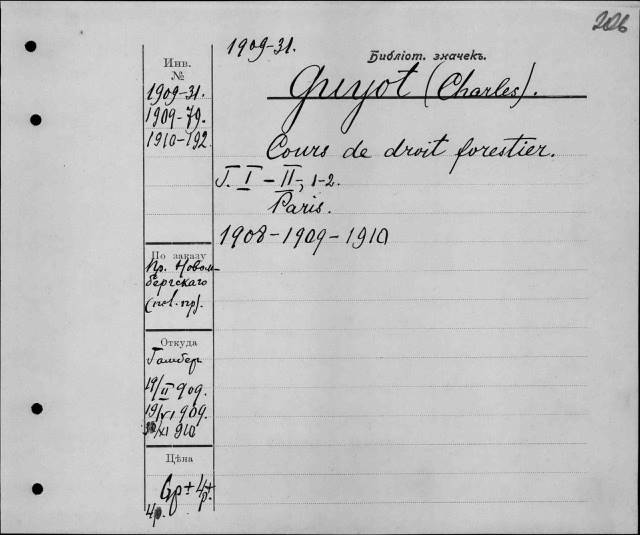 226
1909-31.
Библіот. значекъ.
Guyot (Charles).
Cours de droit forestier.
T. I – II, 1-2.
Paris.
1908-1909-1910
Инв.
№
1909-31.
1909-79.
1910-192
По заказу
Пр. Новом-
бергскаго
Откуда
Гамбер
19/II 909.
19/VI 909.
/XI 910
Цѣна
6р + 4р +
4р.